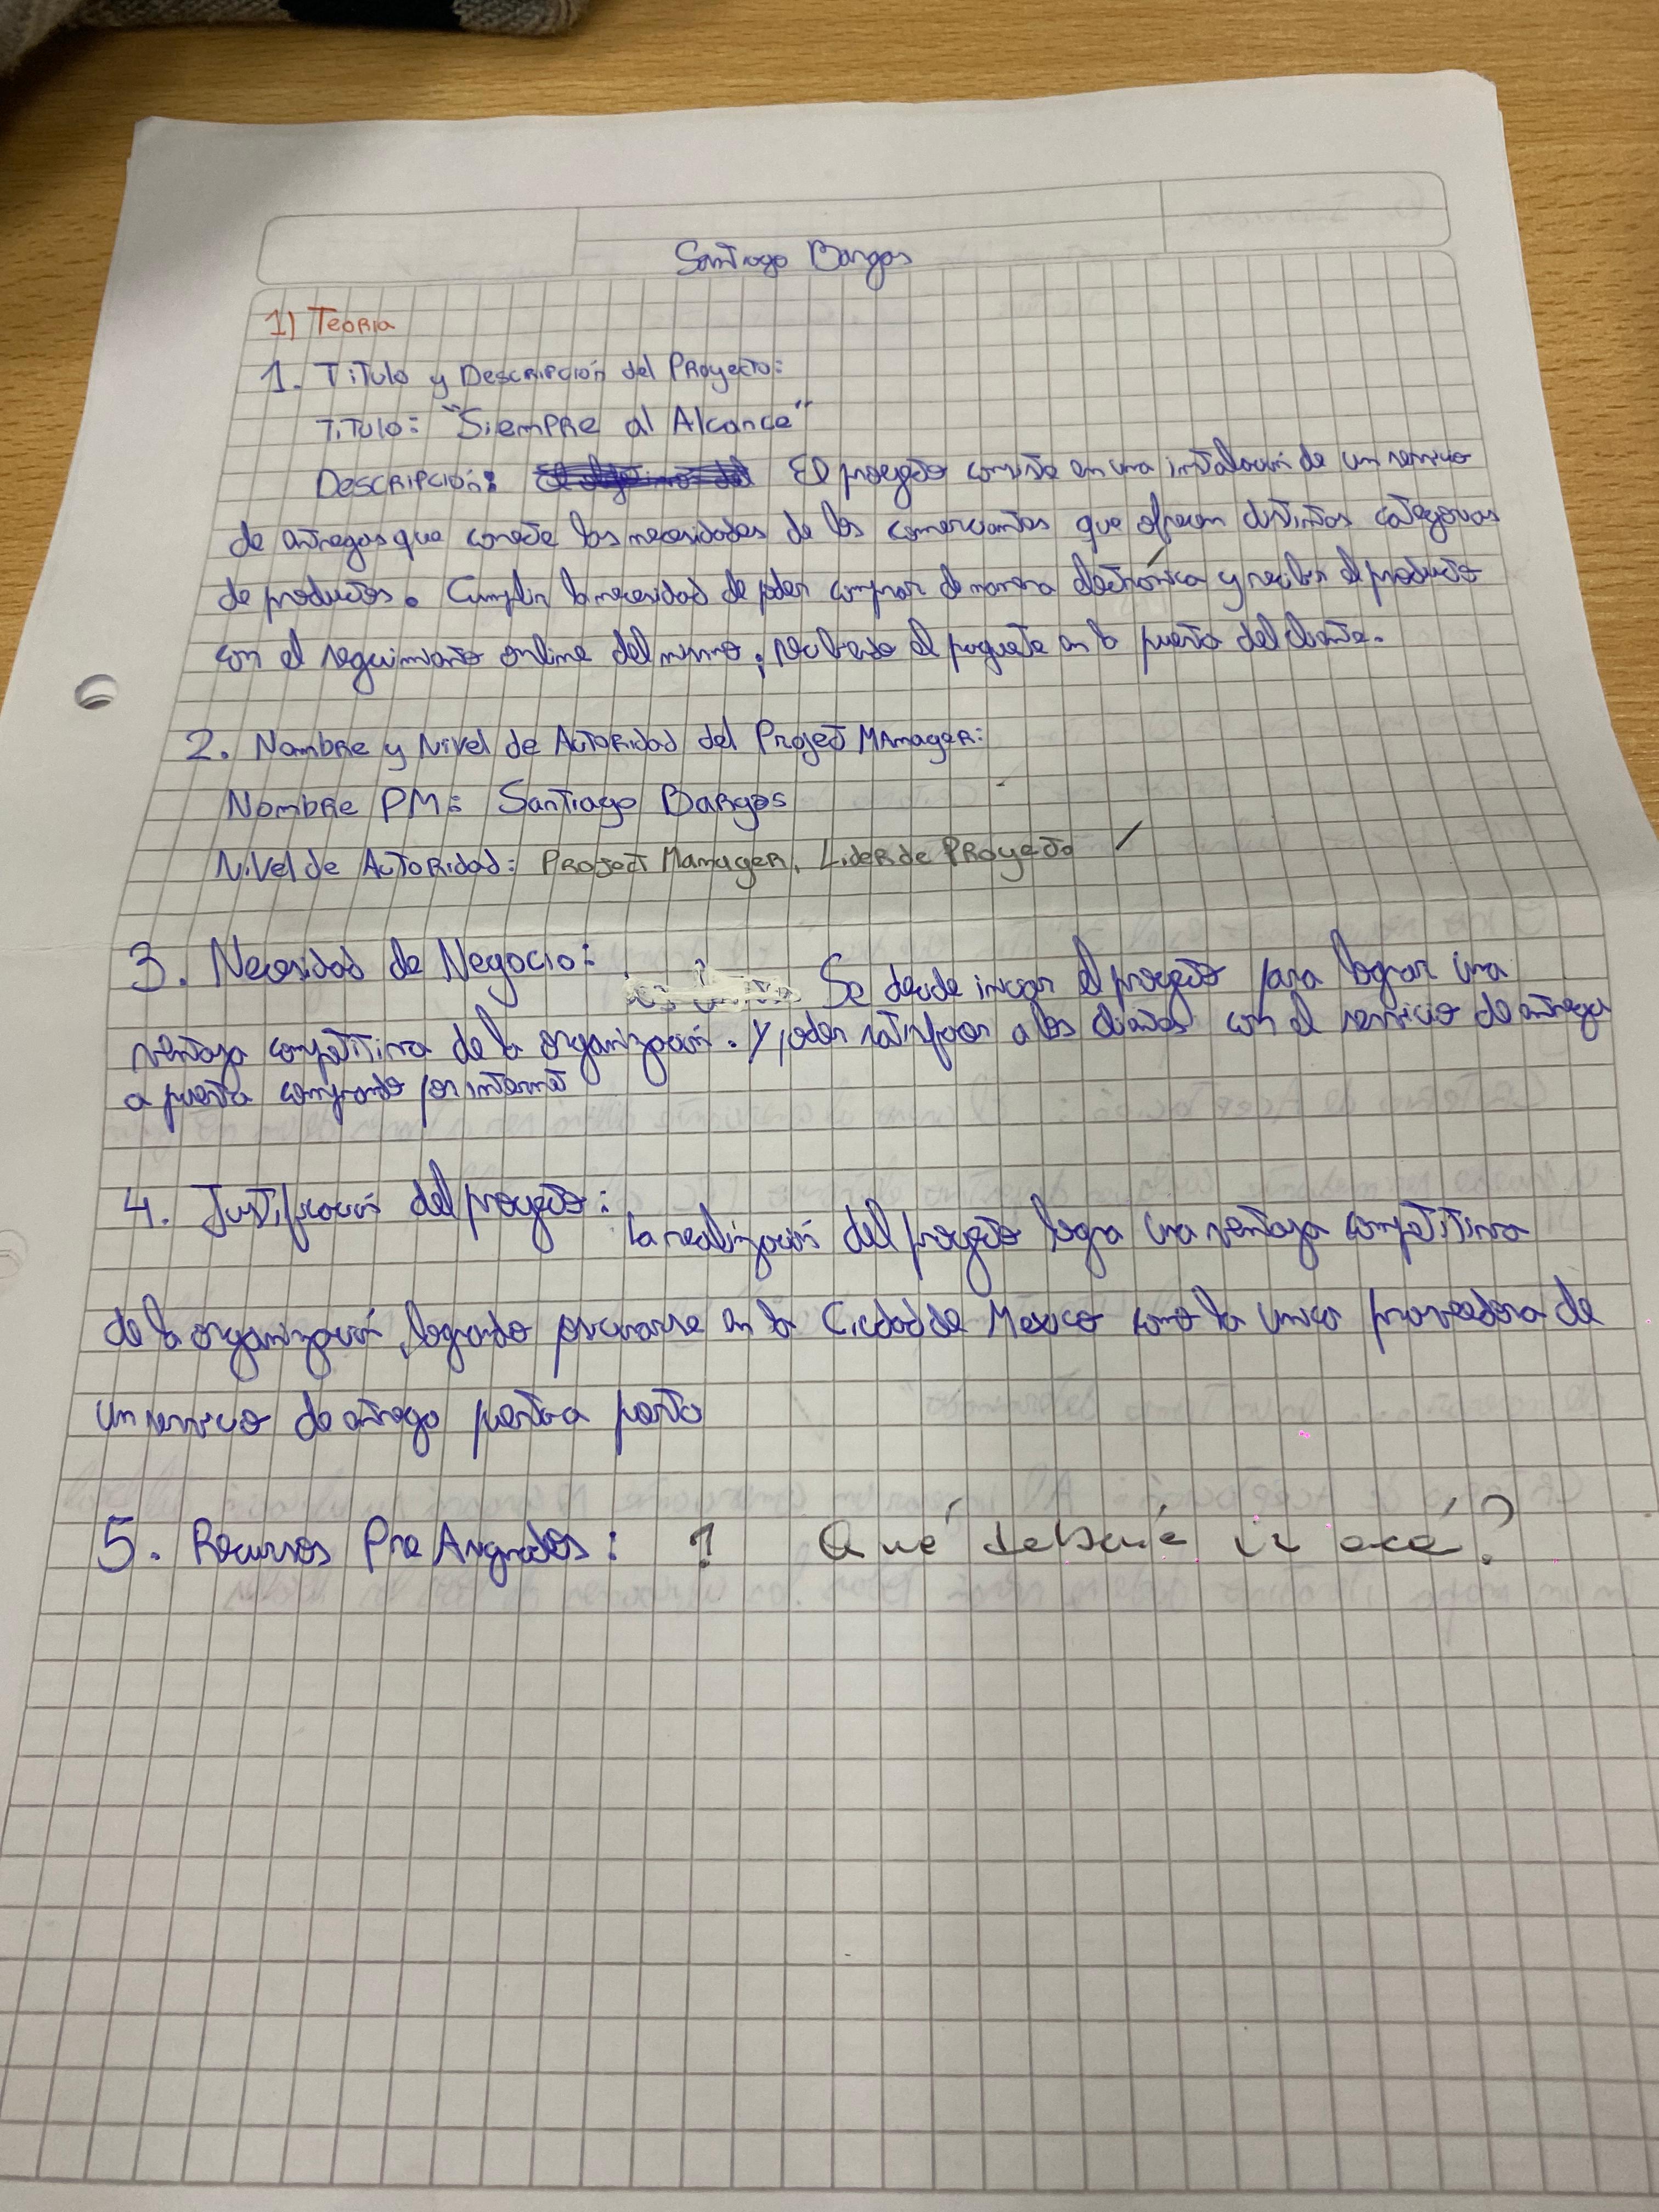 Santiago Bargas
1) Teoria
1. Titulo y Descripción del Proyecto:
Titulo: "Siempre al Alcance"
Descripción: El proyecto consiste en una instalación de un servicio
de entregas que conecte las necesidades de los comerciantes que ofrecen distintas categorias
de productos. Cumplir la necesidad de poder comprar de manera electrónica y recibir el producto
con el seguimiento online del mismo, recibiendo el paquete en la puerta del cliente.
2. Nombre y Nivel de Autoridad del Project Manager:
Nombre PM: Santiago Bargas
Nivel de Autoridad: Project Manager, Lider de Proyecto
3. Necesidad de Negocio: Se decide iniciar el proyecto para lograr una
ventaja competitiva de la organización. Y poder satisfacer a los clientes con el servicio de entrega
a puerta comprando por internet
4. Justificación del proyecto: La realización del proyecto logra una ventaja competitiva
de la organización, logrando posicionarse en la Ciudad de Mexico como la unica proveedora de
un servicio de entrega puerta a puerta
5. Recursos Pre Asignados: ? Qué debería ir acá?